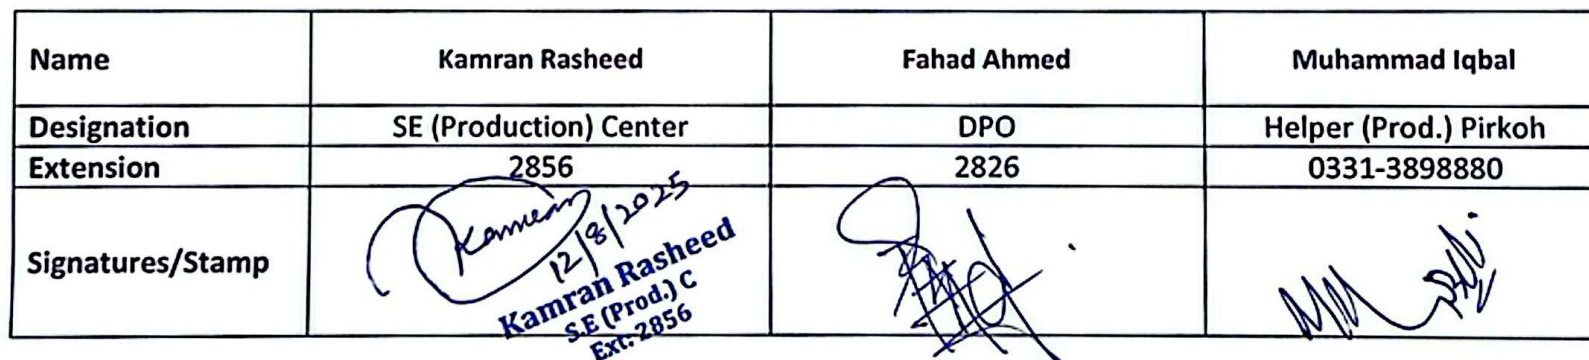 Name Kamran Rasheed Fahad Ahmed Muhammad Iqbal
Designation SE (Production) Center DPO Helper (Prod.) Pirkoh
Extension 2856 2826 0331-3898880
Signatures/Stamp
Kamran
12/8/2025
Kamran Rasheed
S.E (Prod.) C
Ext: 2856